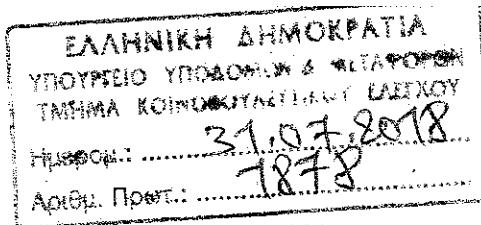 ΕΛΛΗΝΙΚΗ ΔΗΜΟΚΡΑΤΙΑ
ΥΠΟΥΡΓΕΙΟ ΥΠΟΔΟΜΩΝ & ΜΕΤΑΦΟΡΩΝ
ΤΜΗΜΑ ΚΟΙΝΟΒΟΥΛΕΥΤΙΚΟΥ ΕΛΕΓΧΟΥ
Ημερομ.: 31.07.2018
Αριθμ. Πρωτ.: 1878